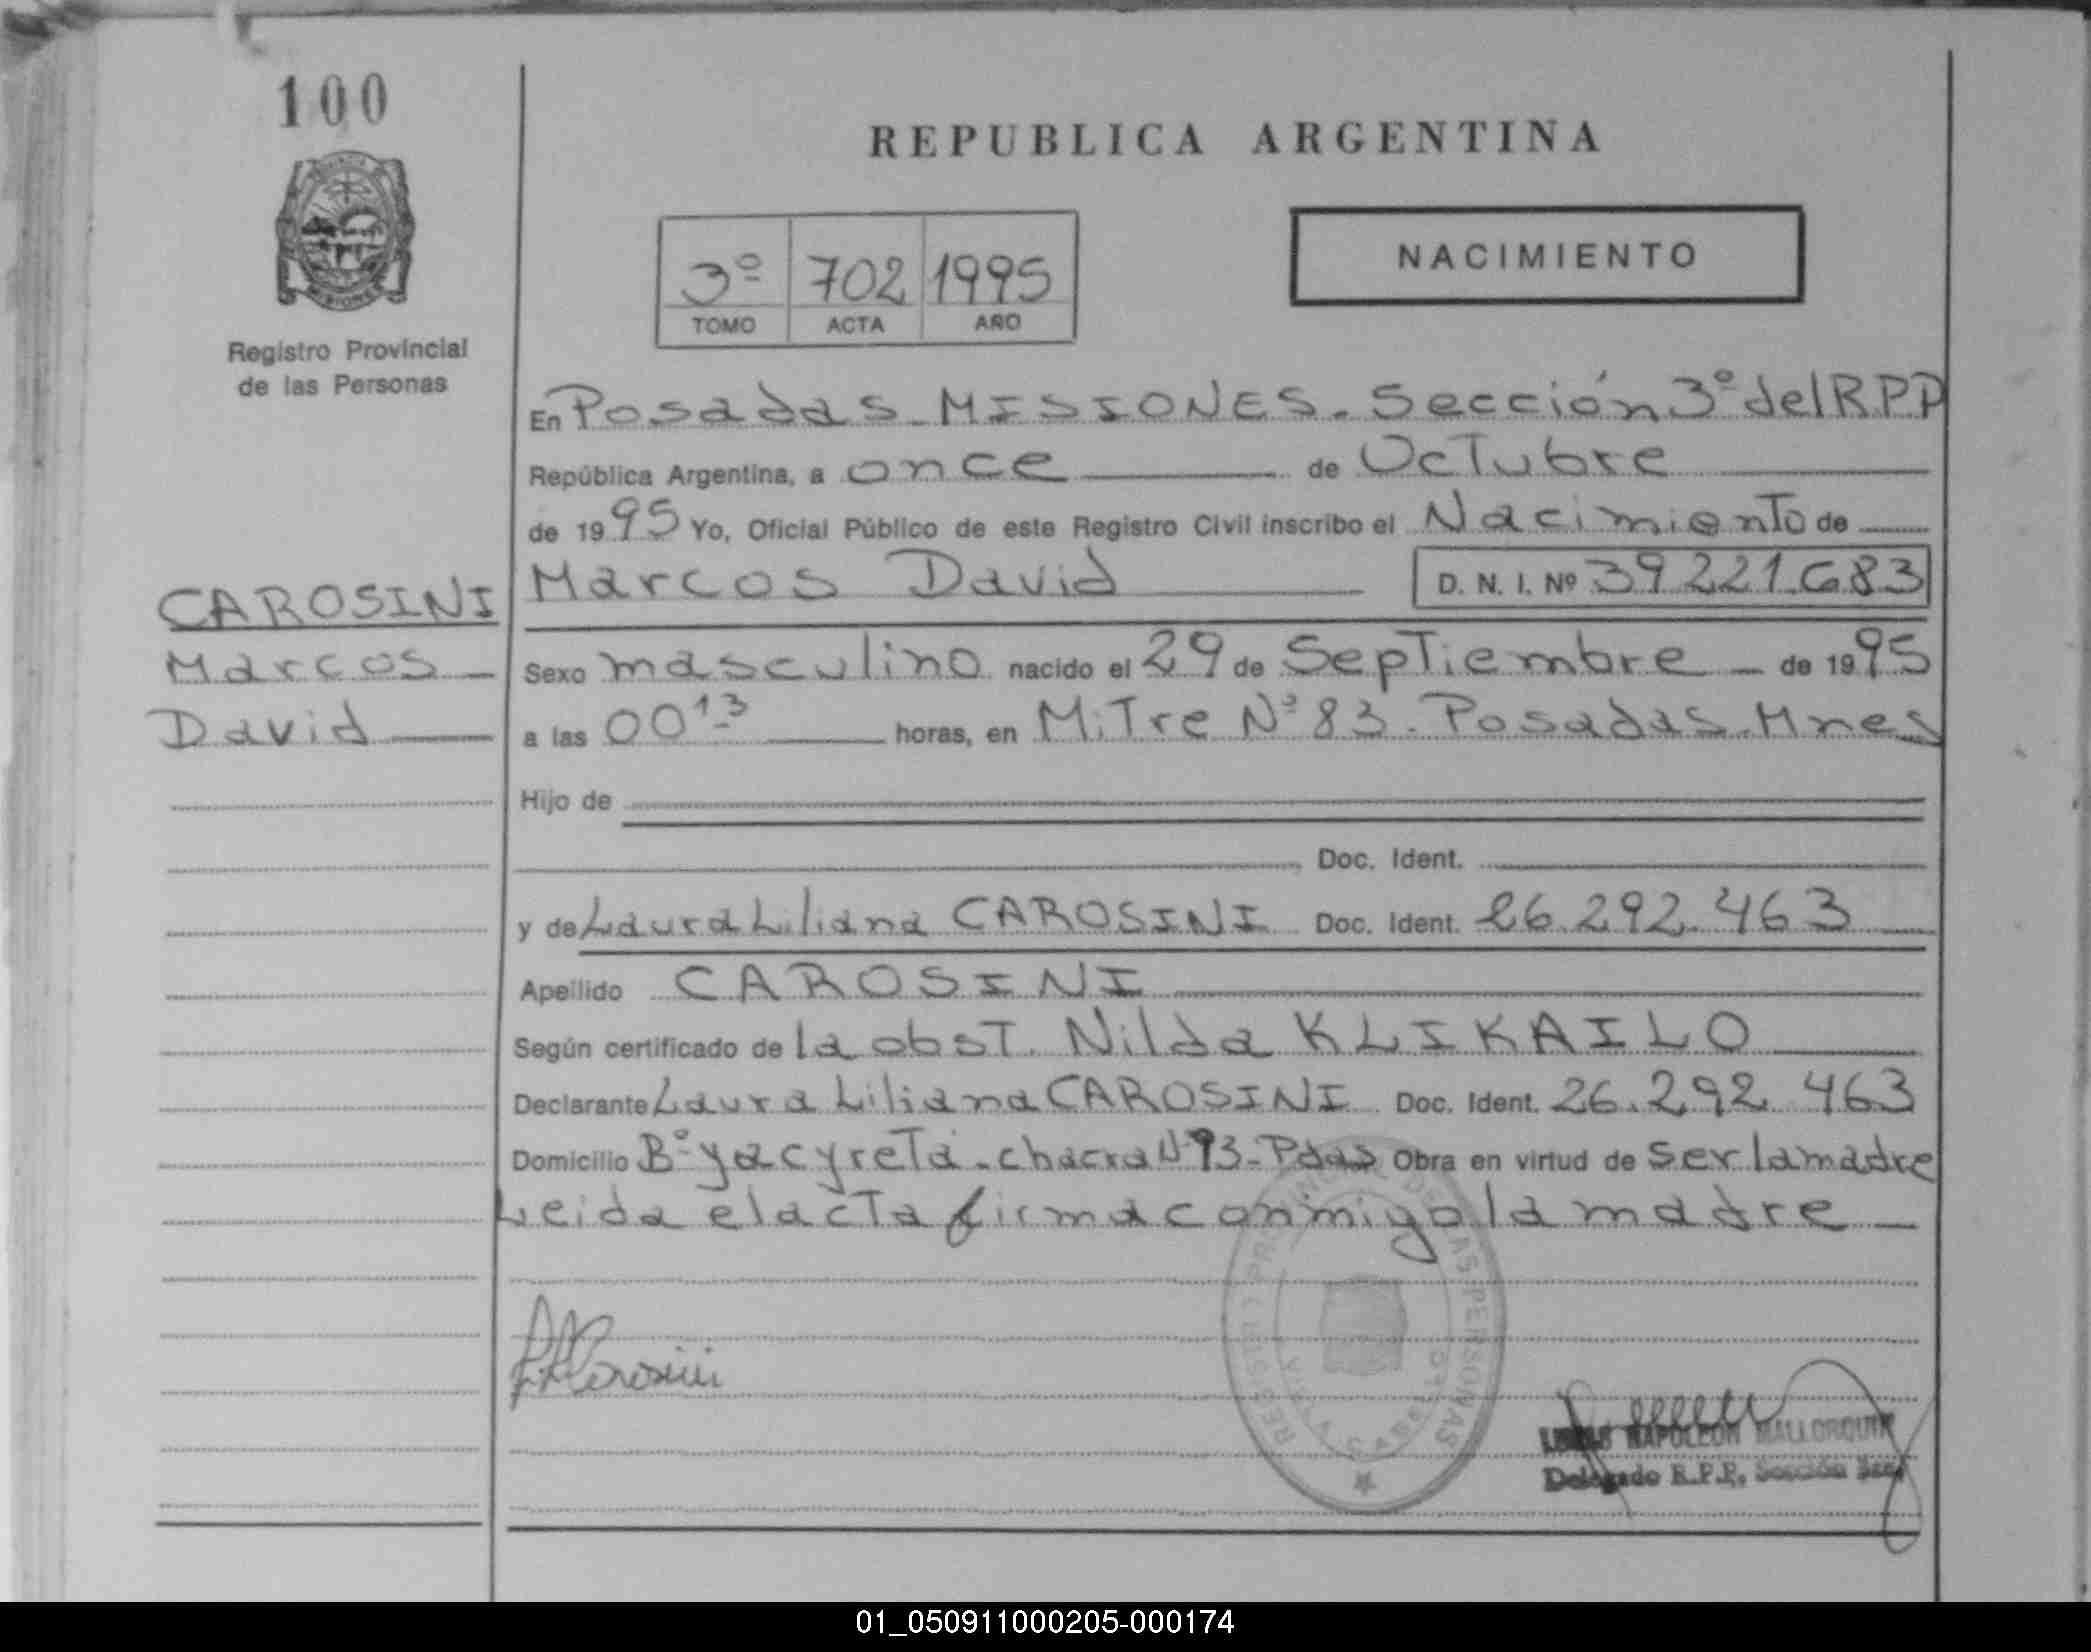 100
REPUBLICA ARGENTINA
NACIMIENTO
3º 702 1995
TOMO ACTA AÑO
MISIONES
Registro Provincial
de las Personas
En Posadas_MISIONES. Sección 3º del RPP
República Argentina, a once de Octubre
de 1995 Yo, Oficial Público de este Registro Civil inscribo el Nacimiento de
CAROSINI
Marcos
David
Marcos David D. N. I. Nº 39.221.683
Sexo masculino nacido el 29 de Septiembre de 1995
a las 00 13 horas, en Mitre Nº 83. Posadas. Mnes
Hijo de
Doc. Ident.
y de Laura Liliana CAROSINI Doc. Ident. 26.292.463
Apellido CAROSINI
Según certificado de la obst. Nilda KLIKAILO
Declarante Laura Liliana CAROSINI Doc. Ident. 26.292.463
Domicilio Bº yacyretá. chacra Nº 93. Pdas Obra en virtud de ser la madre
Leida el acta firma conmigo la madre
Carosini
NAPOLEON MALLORQUIN
Delegado R.P.P. Sección 3ra
01_050911000205-000174